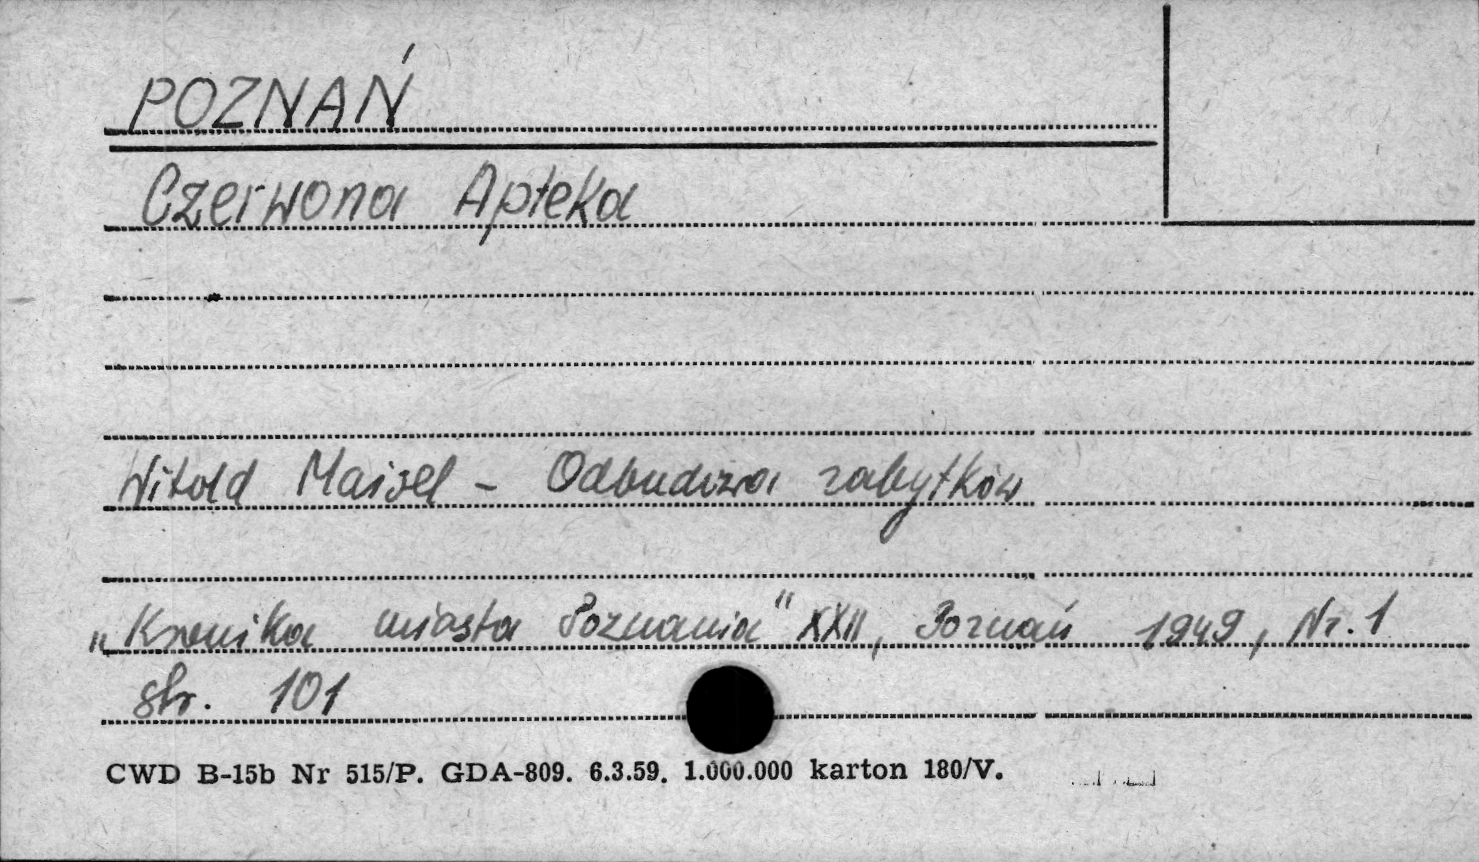 POZNAŃ
Czerwona Apteka
Witold Maisel - Odbudowa zabytków
„Kronika miasta Poznania" XXII, Poznań 1949, Nr. 1
str. 101
CWD B-15b Nr 515/P. GDA-809. 6.3.59. 1.000.000 karton 180/V.